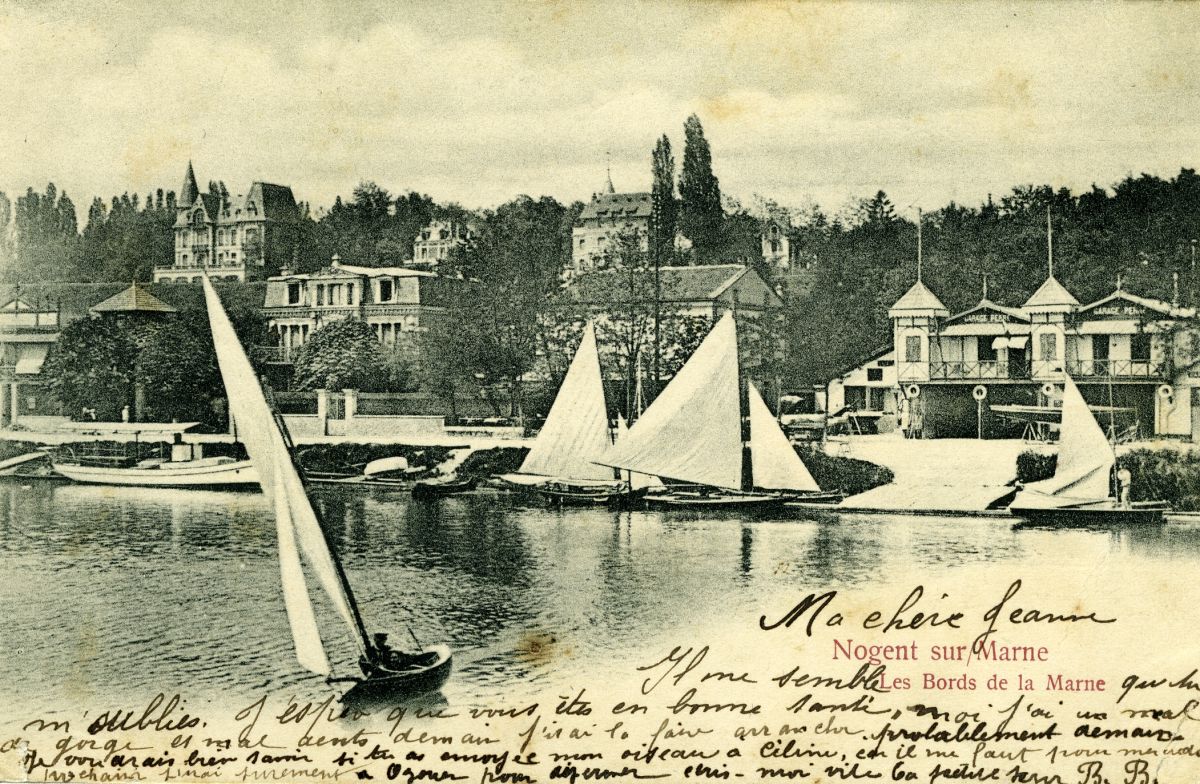 GARAGE
Ma chère Jeanne
Nogent sur Marne
Les Bords de la Marne
Il me semble que tu
m'oublies. J'espère que vous êtes en bonne santé, moi j'ai un mal
de gorge et mal aux dents demain j'irai la faire arracher probablement demain
Je voudrais bien savoir si tu as envoyée mon oiseau a car il me faut pour mercredi
prochain j'irai surement a Ozouer pour écris-moi vite ta petite sœur B. B.